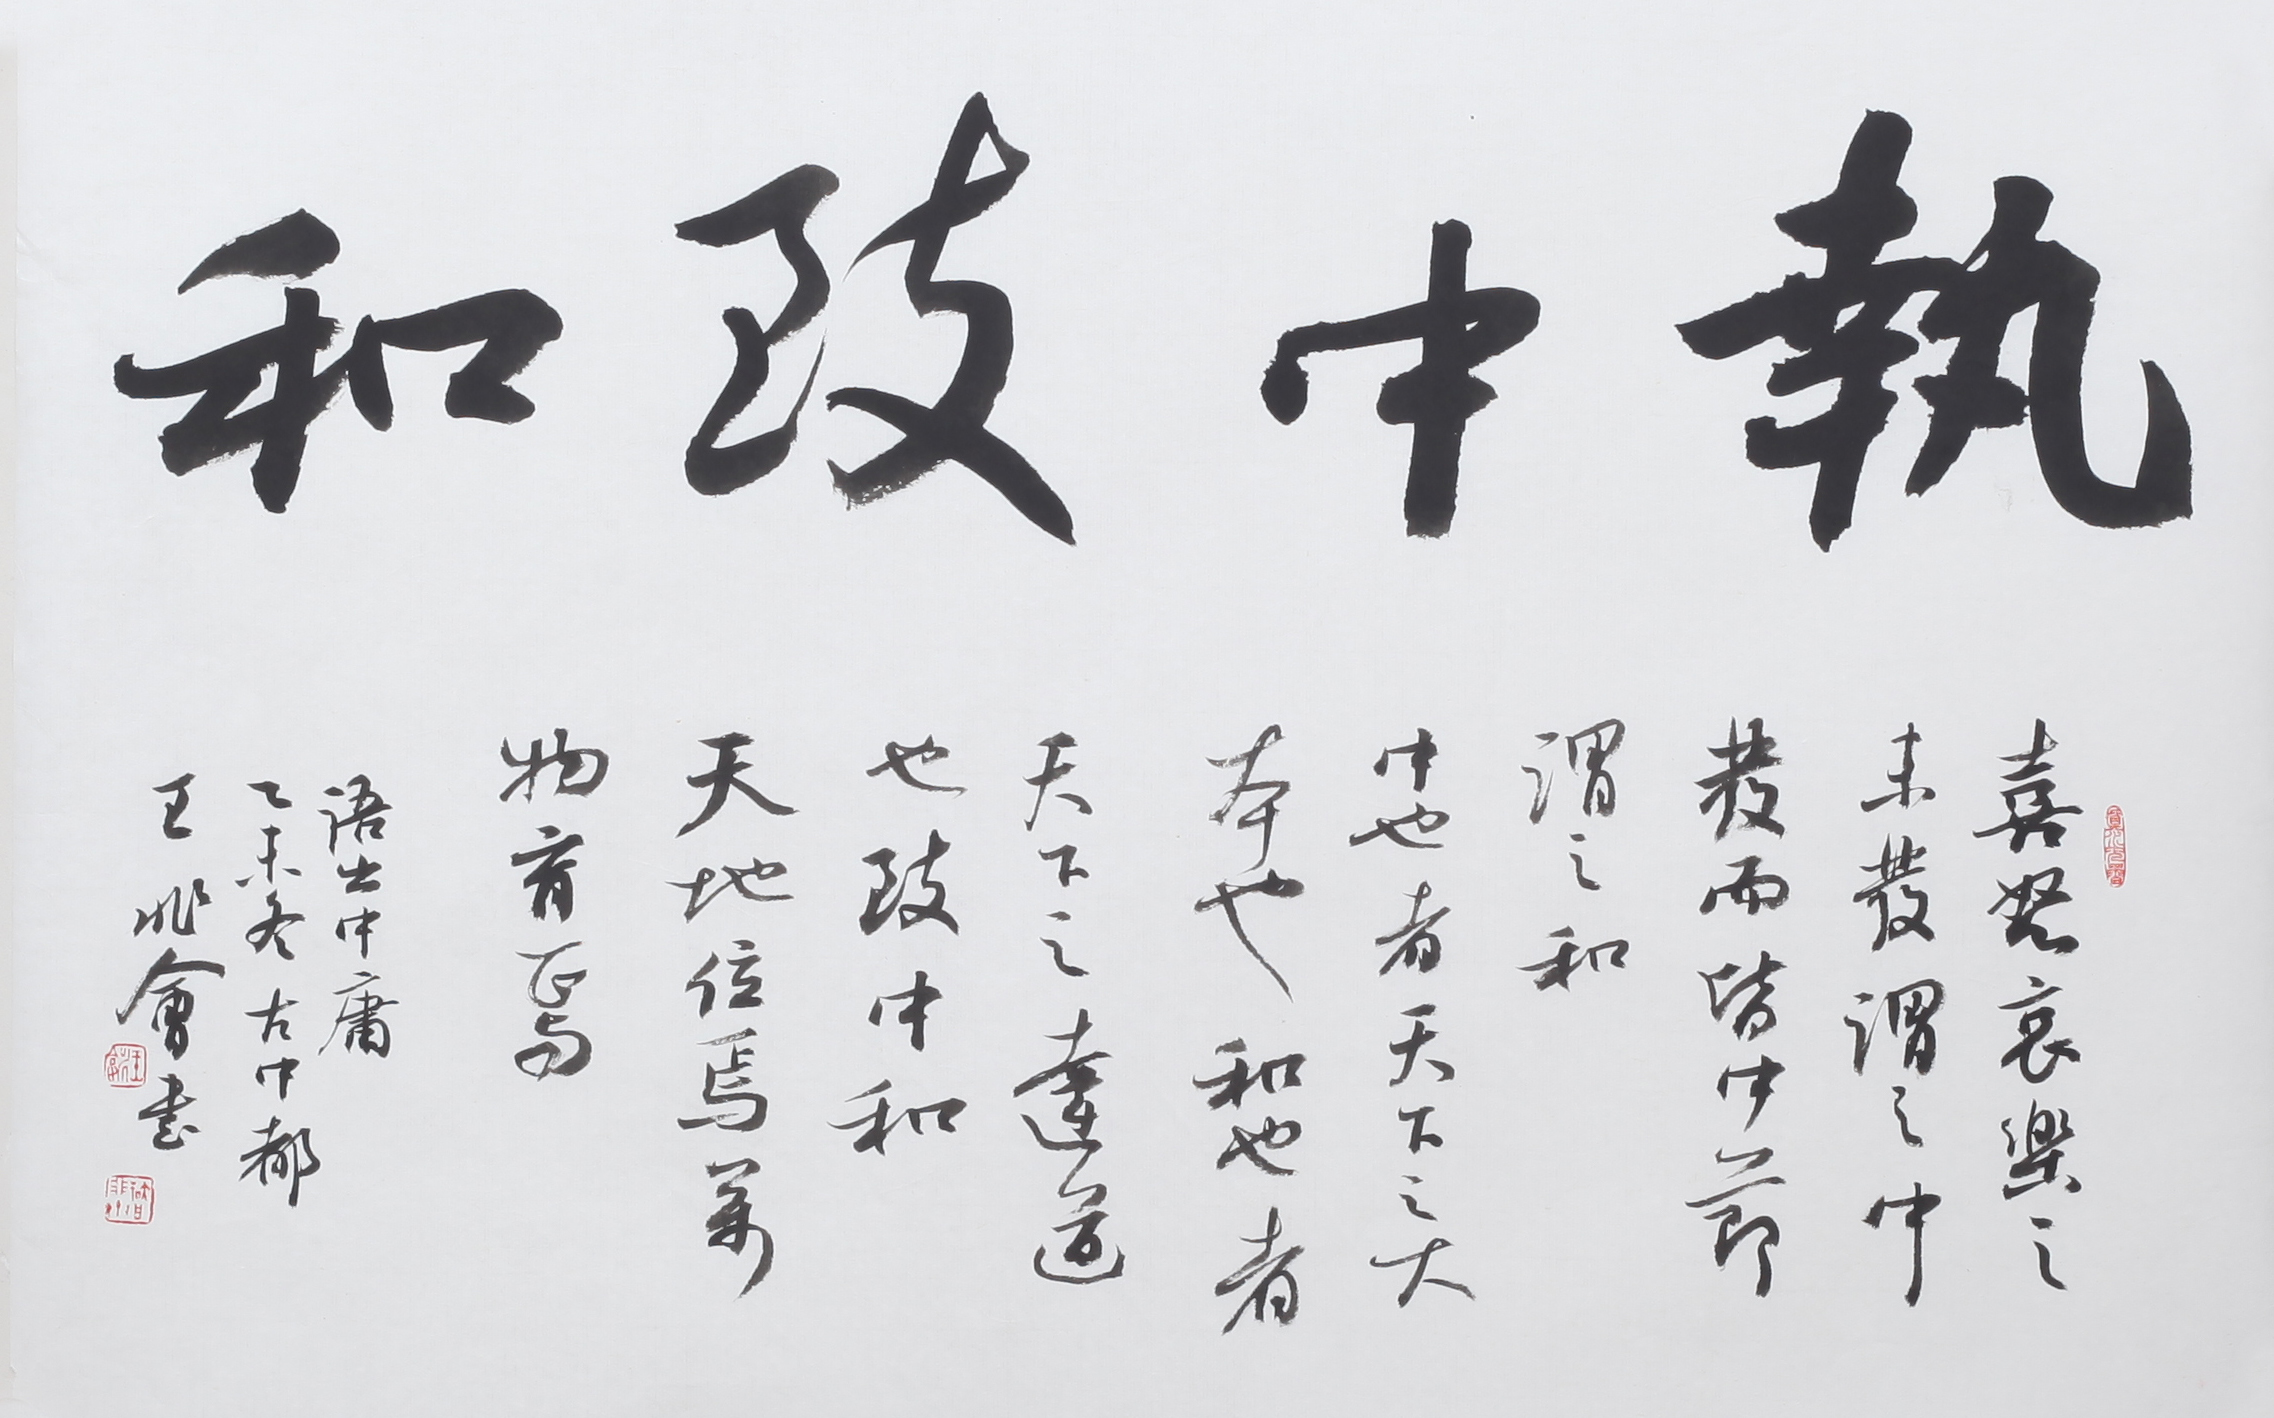 執中致和
喜怒哀樂之
未發謂之中
發而皆中節
謂之和
中也者天下之大
本也和也者
天下之達道
也致中和
天地位焉萬
物育焉
語出中庸
乙未冬古中都
王兆會書